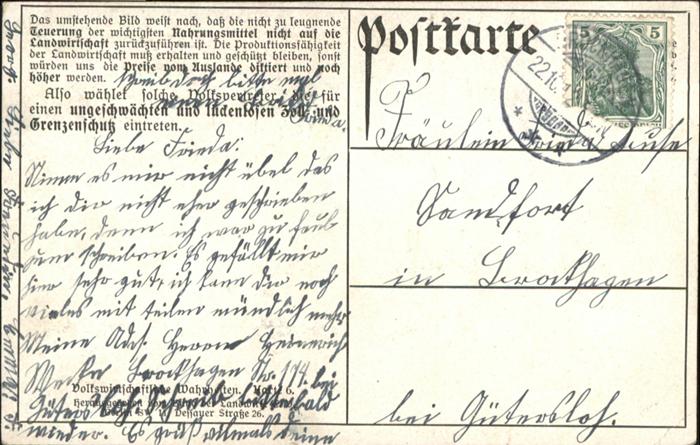 Das umstehende Bild weist nach, daß die nicht zu leugnende
Teuerung der wichtigsten Nahrungsmittel nicht auf die
Landwirtschaft zurückzuführen ist. Die Produktionsfähigkeit
der Landwirtschaft muß erhalten und geschützt bleiben, sonst
würden uns die Preise vom Auslande diktiert und noch
höher werden.
Also wählet solche Volksvertreter, die für
einen ungeschwächten und lückenlosen Zoll- und
Grenzenschutz eintreten.
schreib doch bitte mal
Frieda.
Liebe Frieda:
Nimm es mir nicht übel das
ich dir nicht eher geschrieben
habe, denn ich war zu faul
zum schreiben. Es gefällt mir
hier sehr gut, ich kann dir noch
vieles mit teilen mündlich mehr
Meine Adr. Herrn Heinrich
Brockhagen Nr. 174. bei
Güters
bald
wieder. Es grüß allmals deine
Volkswirtschaftliche Wahrheiten. Karte 6.
Dessauer Straße 26.
Postkarte
5 5
22.10.
Fräulein Frieda
Sandfort
in Brockhagen
bei Gütersloh.